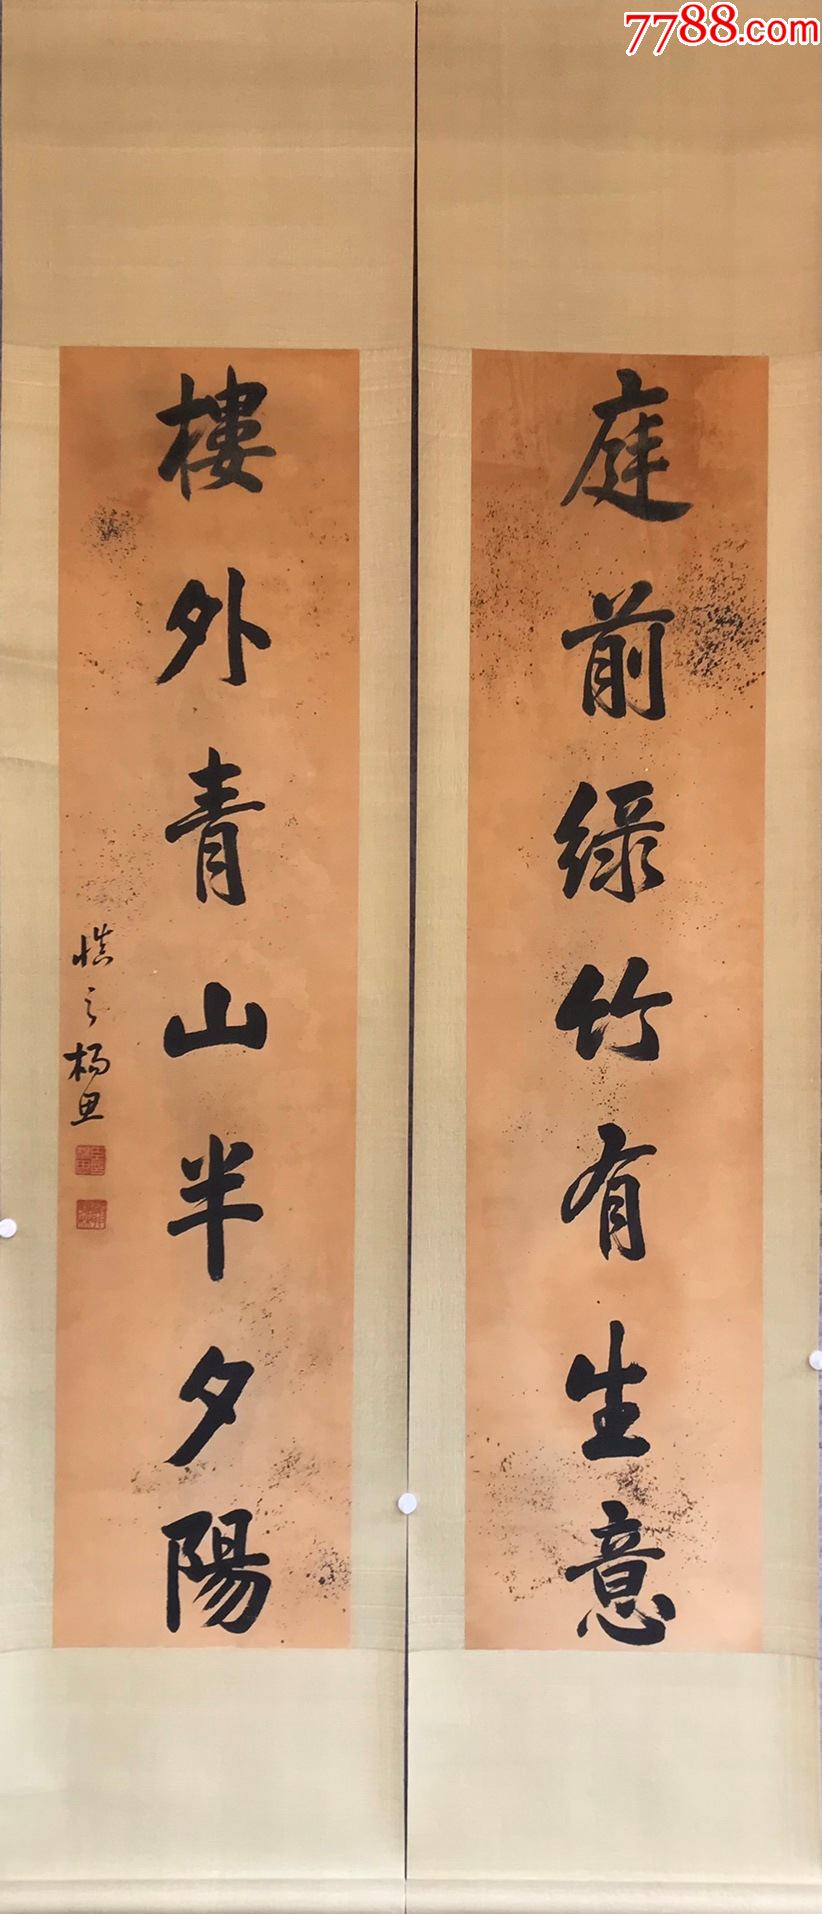 庭前綠竹有生意
樓外青山半夕陽
慎之楊思
7788.com